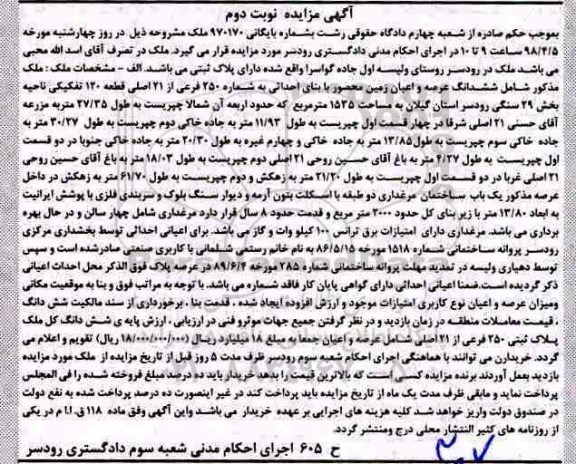 آگهی مزایده نوبت دوم
بموجب حکم صادره از شعبه چهارم دادگاه حقوقی رشت بشماره بایگانی ۹۷۰۱۷۰ ملک مشروحه ذیل در روز چهارشنبه مورخه
۹۸/۴/۵ ساعت ۹ تا ۱۰ در اجرای احکام مدنی دادگستری رودسر مورد مزایده قرار می گیرد. ملک در تصرف آقای اسد الله محبی
می باشد ملک در رودسر روستای ولیسه اول جاده گواسرا واقع شده دارای پلاک ثبتی می باشد. الف - مشخصات ملک : ملک
مذکور شامل ششدانگ عرصه و اعیان زمین محصور با بنای احداثی به شماره ۲۵۰ فرعی از ۲۱ اصلی قطعه ۱۲۰ تفکیکی ناحیه
بخش ۲۹ سنگی رودسر استان گیلان به مساحت ۱۵۳۵ مترمربع که حدود اربعه آن شمالا چپریست به طول ۲۷/۳۵ متر به مزرعه
آقای حسنی ۲۱ اصلی شرقا در چهار قسمت اول چپریست به طول ۱۱/۹۳ متر به جاده خاکی دوم چپریست به طول ۳۰/۲۷ متر به
جاده خاکی سوم چپریست به طول ۱۳/۸۵ متر به جاده خاکی و چهارم غیره به طول ۲۰/۳۰ متر به جاده خاکی جنوبا در دو قسمت
اول چپریست به طول ۴/۲۷ متر به باغ آقای حسین روحی ۲۱ اصلی دوم چپریست به طول ۱۸/۰۳ متر به باغ آقای حسین روحی
۲۱ اصلی غربا در دو قسمت اول چپریست به طول ۲۱/۲۰ متر به زهکش و دوم چپریست به طول ۶۱/۷۰ متر به زهکش در داخل
عرصه مذکور یک باب ساختمان مرغداری دو طبقه با اسکلت بتون آرمه و دیوار سنگ بلوک و سربندی فلزی با پوشش ایرانیت
به ابعاد ۱۳/۸۰ متر با زیر بنای کل حدود ۲۰۰۰ متر مربع و قدمت حدود ۸ سال قرار دارد مرغداری شامل چهار سالن و در حال بهره
برداری می باشد. مرغداری دارای امتیازات برق ترانس ۱۰۰ کیلو وات و گاز می باشد. برای اعیانی احداثی توسط بخشداری مرکزی
رودسر پروانه ساختمانی شماره ۱۵۱۸ مورخه ۸۶/۵/۱۵ به نام خانم رستمی شلمانی با کاربری صنعتی صادرشده است و سپس
توسط دهیاری ولیسه در تمدید مهلت پروانه ساختمانی شماره ۲۸۵ مورخه ۸۹/۶/۴ در عرصه پلاک فوق الذکر محل احداث اعیانی
ذکر گردیده است.ضمنا اعیانی احداثی دارای گواهی پایان کار فاقد شماره می باشد. با توجه به مراتب فوق و بنا به موقعیت مکانی
ومیزان عرصه و اعیان نوع کاربری امتیازات موجود و ارزش افزوده ایجاد شده ، قدمت بنا ، برخورداری از سند مالکیت شش دانگ
، قیمت معاملات منطقه در زمان بازدید و در نظر گرفتن جمیع جهات موثرو فنی در ارزیابی ، ارزش پایه ی شش دانگ کل ملک
پلاک ثبتی ۲۵۰ فرعی از ۲۱ اصلی شامل عرصه و اعیان جمعا به مبلغ ۱۸ میلیارد ریال (۱۸/۰۰۰/۰۰۰/۰۰۰ ریال) تقویم و اعلام می
گردد. خریداران می توانند با هماهنگی اجرای احکام شعبه سوم رودسر ظرف مدت ۵ روز قبل از تاریخ مزایده از ملک مورد مزایده
بازدید بعمل آوردند برنده مزایده کسی است که بالاترین قیمت را بدهد خریدار باید ده درصد مبلغ فروخته شده را فی المجلس
پرداخت نماید و مابقی ظرف مدت یک ماه از تاریخ مزایده باید پرداخت کند در غیر اینصورت ده درصد پرداخت شده به نفع دولت
در صندوق دولت واریز خواهد شد کلیه هزینه های اجرایی بر عهده خریدار می باشد واین آگهی وفق ماده ۱۱۸ ق.ا.م در یکی
از روزنامه های کثیر الانتشار محلی درج ومنتشر گردد.
ح ۶۰۵ اجرای احکام مدنی شعبه سوم دادگستری رودسر